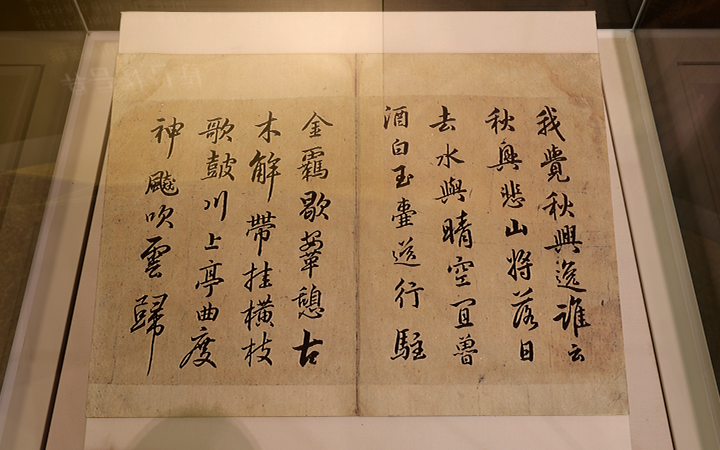 我覺秋興逸誰云
秋興悲山將落日
去水與晴空宜魯
酒白玉壺送行駐
金羈歇鞍憩古
木解帶挂橫枝
歌鼓川上亭曲度
神飈吹雲歸